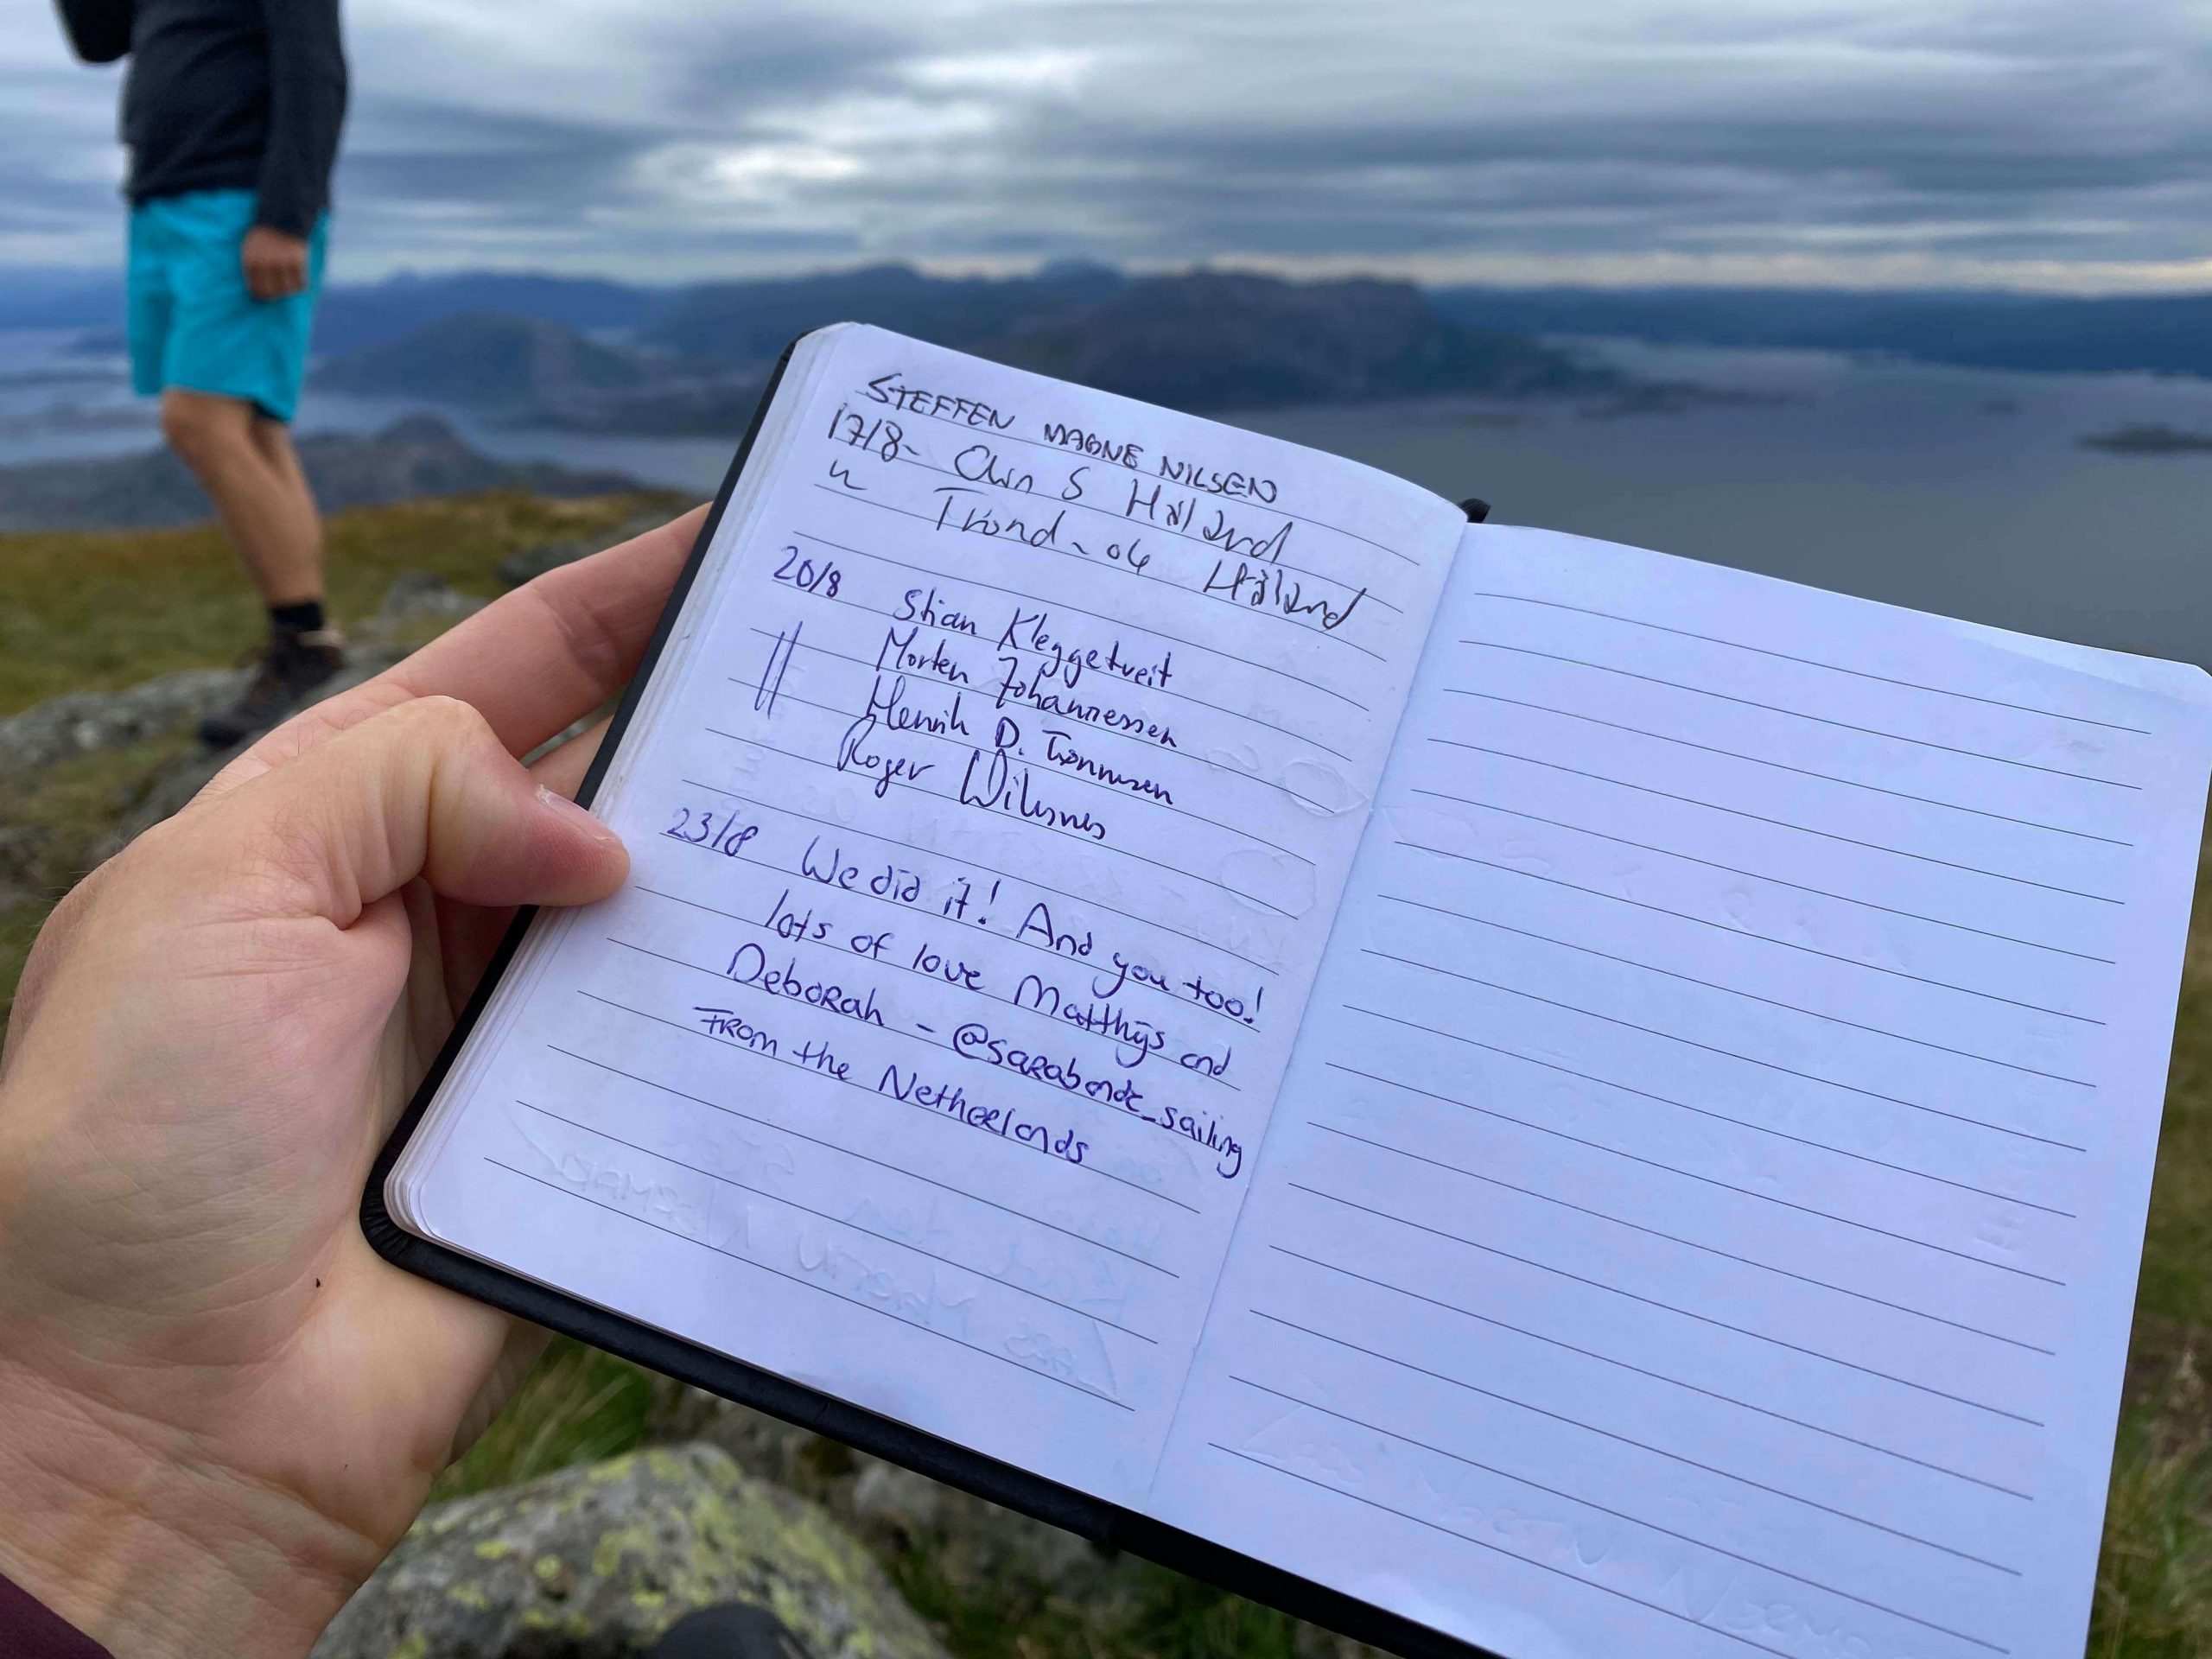 STEFFEN MAGNE NILSEN
17/8- S Håland
Trond Håland
20/8 Stian Kleggetveit
Morten Johannessen
Henrik D. Tønnesen
Roger
23/8 We did it! And you too!
lots of love Matthijs and
Deborah - @sarabande_sailing
From the Netherlands